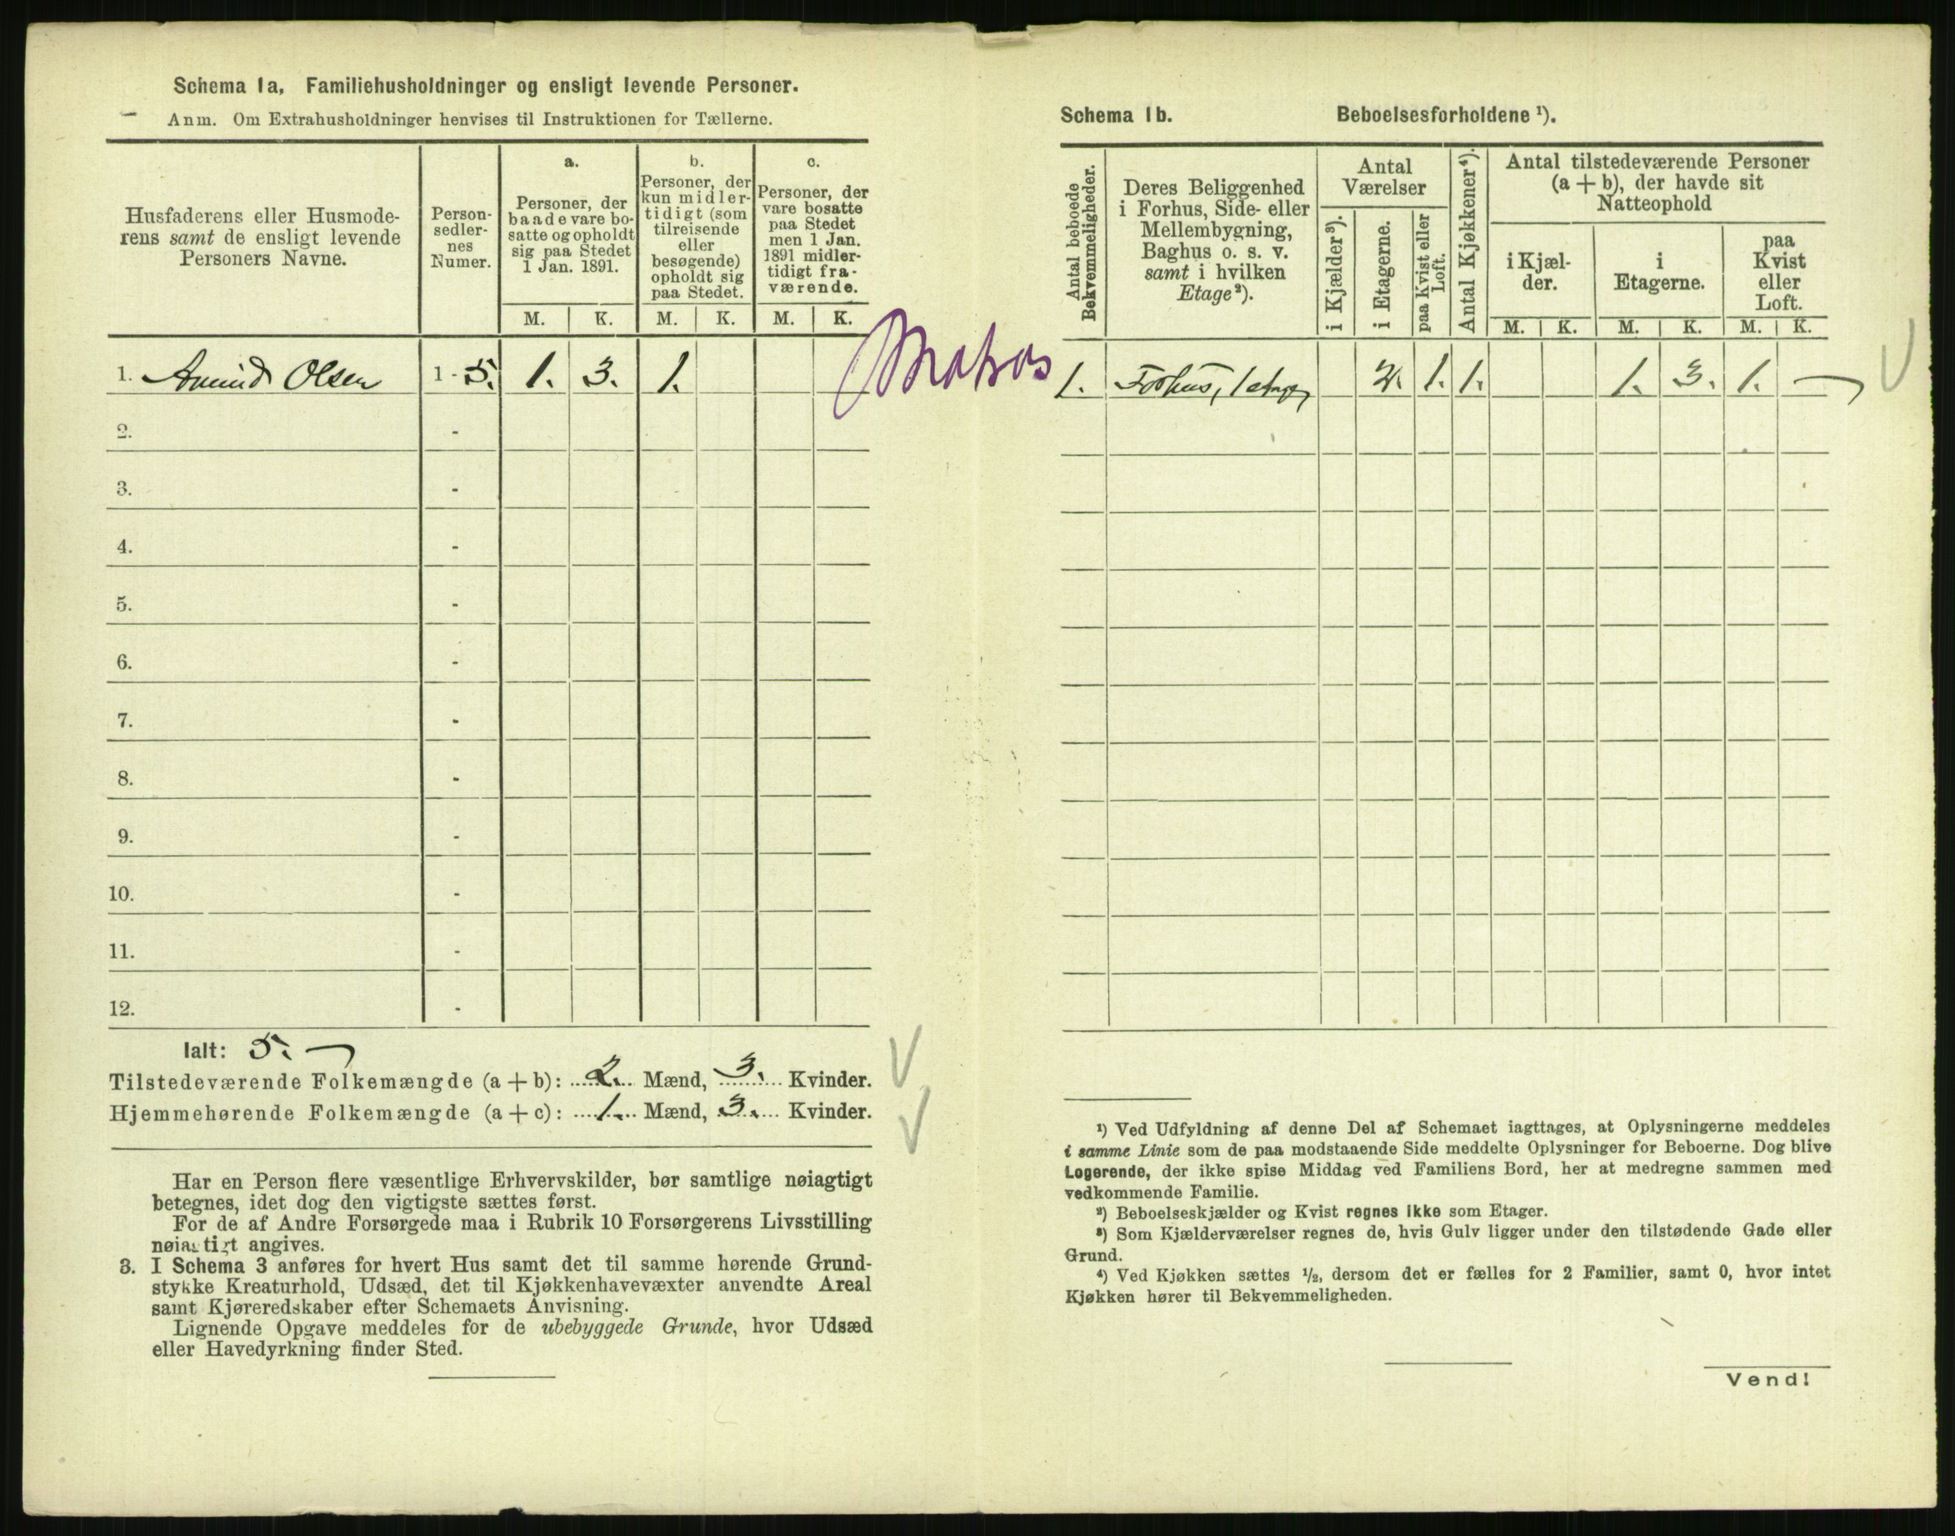 Schema 1a. Familiehusholdninger og ensligt levende Personer.
Anm. Om Extrahusholdninger henvises til Instruktionen for Tællerne.
Husfaderens eller Husmode-
rens samt de ensligt levende
Personers Navne.
Person-
sedler-
nes
Numer.
a.
Personer, der
baade vare bo-
satte og opholdt
sig paa Stedet
1 Jan. 1891.
b.
Personer, der
kun midler-
tidigt (som
tilreisende
eller
besøgende)
opholdt sig
paa Stedet.
c.
Personer, der
vare bosatte
paa Stedet
men 1 Jan.
1891 midler-
tidigt fra-
værende.
M. K. M. K. M. K.
1. Amund Olsen 1 - 5. 1. 3. 1.
2. -
3. -
4. -
5. -
6. -
7. -
8. -
9. -
10. -
11. -
12. -
Ialt: 5.
Tilstedeværende Folkemængde (a + b): 2. Mænd, 3. Kvinder.
Hjemmehørende Folkemængde (a + c): 1. Mænd, 3. Kvinder.
Har en Person flere væsentlige Erhvervskilder, bør samtlige nøiagtigt
betegnes, idet dog den vigtigste sættes først.
For de af Andre Forsørgede maa i Rubrik 10 Forsørgerens Livsstilling
nøiagtigt angives.
3. I Schema 3 anføres for hvert Hus samt det til samme hørende Grund-
stykke Kreaturhold, Udsæd, det til Kjøkkenhavevæxter anvendte Areal
samt Kjøreredskaber efter Schemaets Anvisning.
Lignende Opgave meddeles for de ubebyggede Grunde, hvor Udsæd
eller Havedyrkning finder Sted.
Schema 1b. Beboelsesforholdene ¹).
Antal beboede
Bekvemmeligheder.
Deres Beliggenhed
i Forhus, Side- eller
Mellembygning,
Baghus o. s. v.
samt i hvilken
Etage²).
Antal
Værelser
i Kjælder³).
i Etagerne.
paa Kvist eller
Loft.
Antal Kjøkkener⁴).
Antal tilstedeværende Personer
(a + b), der havde sit
Natteophold
i Kjæl-
der.
i
Etagerne.
paa
Kvist
eller
Loft.
M. K. M. K. M. K.
1. Forhus, 1 etage 2. 1. 1. 1. 3. 1.
¹) Ved Udfyldning af denne Del af Schemaet iagttages, at Oplysningerne meddeles
i samme Linie som de paa modstaaende Side meddelte Oplysninger for Beboerne. Dog blive
Logerende, der ikke spise Middag ved Familiens Bord, her at medregne sammen med
vedkommende Familie.
²) Beboelseskjælder og Kvist regnes ikke som Etager.
³) Som Kjælderværelser regnes de, hvis Gulv ligger under den tilstødende Gade eller
Grund.
⁴) Ved Kjøkken sættes ½, dersom det er fælles for 2 Familier, samt 0, hvor intet
Kjøkken hører til Bekvemmeligheden.
Vend!